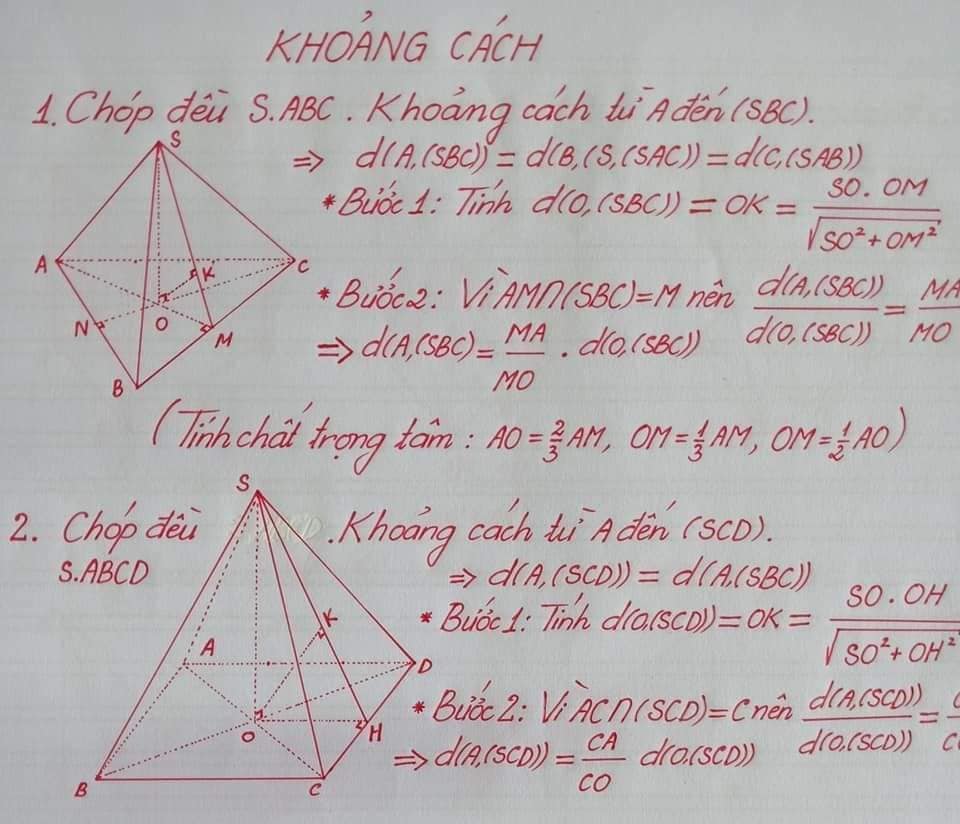 KHOẢNG CÁCH
1. Chóp đều S.ABC. Khoảng cách từ A đến (SBC).
⇒ d(A,(SBC)) = d(B,(S,(SAC)) = d(C,(SAB))
* Bước 1: Tính d(O,(SBC)) = OK = SO.OM / √SO²+OM²
* Bước 2: Vì AM∩(SBC)=M nên d(A,(SBC)) / d(O,(SBC)) = MA / MO
⇒ d(A,(SBC) = MA / MO . d(O,(SBC))
(Tính chất trọng tâm: AO = 2/3 AM, OM = 1/3 AM, OM = 1/2 AO)
S
A
K
C
N
O
M
B
2. Chóp đều .Khoảng cách từ A đến (SCD).
S.ABCD
⇒ d(A,(SCD)) = d(A,(SBC))
* Bước 1: Tính d(O,(SCD)) = OK = SO.OH / √SO²+OH²
* Bước 2: Vì AC∩(SCD)=C nên d(A,(SCD)) / d(O,(SCD)) =
⇒ d(A,(SCD)) = CA / CO d(O,(SCD))
S
K
A
D
O
H
B
C